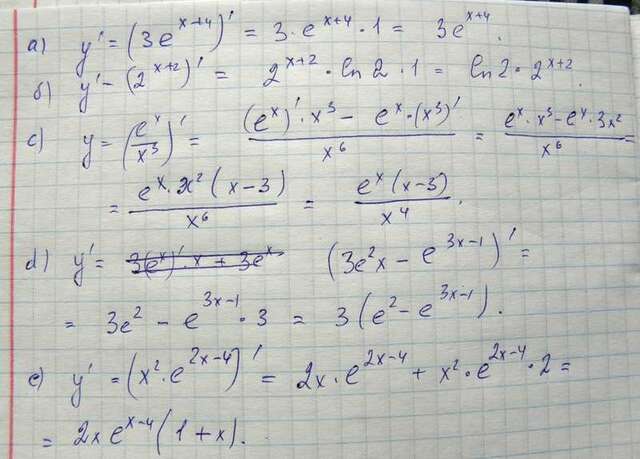 a) y' = (3e^{x+4})' = 3·e^{x+4}·1 = 3e^{x+4}.
б) y' - (2^{x+2})' = 2^{x+2}·ln 2·1 = ln 2·2^{x+2}.
c) y = (e^x/x^3)' = ((e^x)'·x^3 - e^x·(x^3)')/x^6 = (e^x·x^3 - e^x·3x^2)/x^6 =
= (e^x·x^2(x-3))/x^6 = (e^x(x-3))/x^4.
d) y' = 3(e^x)'·x + 3e^x (3e^2x - e^{3x-1})' =
= 3e^2 - e^{3x-1}·3 = 3(e^2 - e^{3x-1}).
e) y' = (x^2·e^{2x-4})' = 2x·e^{2x-4} + x^2·e^{2x-4}·2 =
= 2xe^{x-4}(1+x).